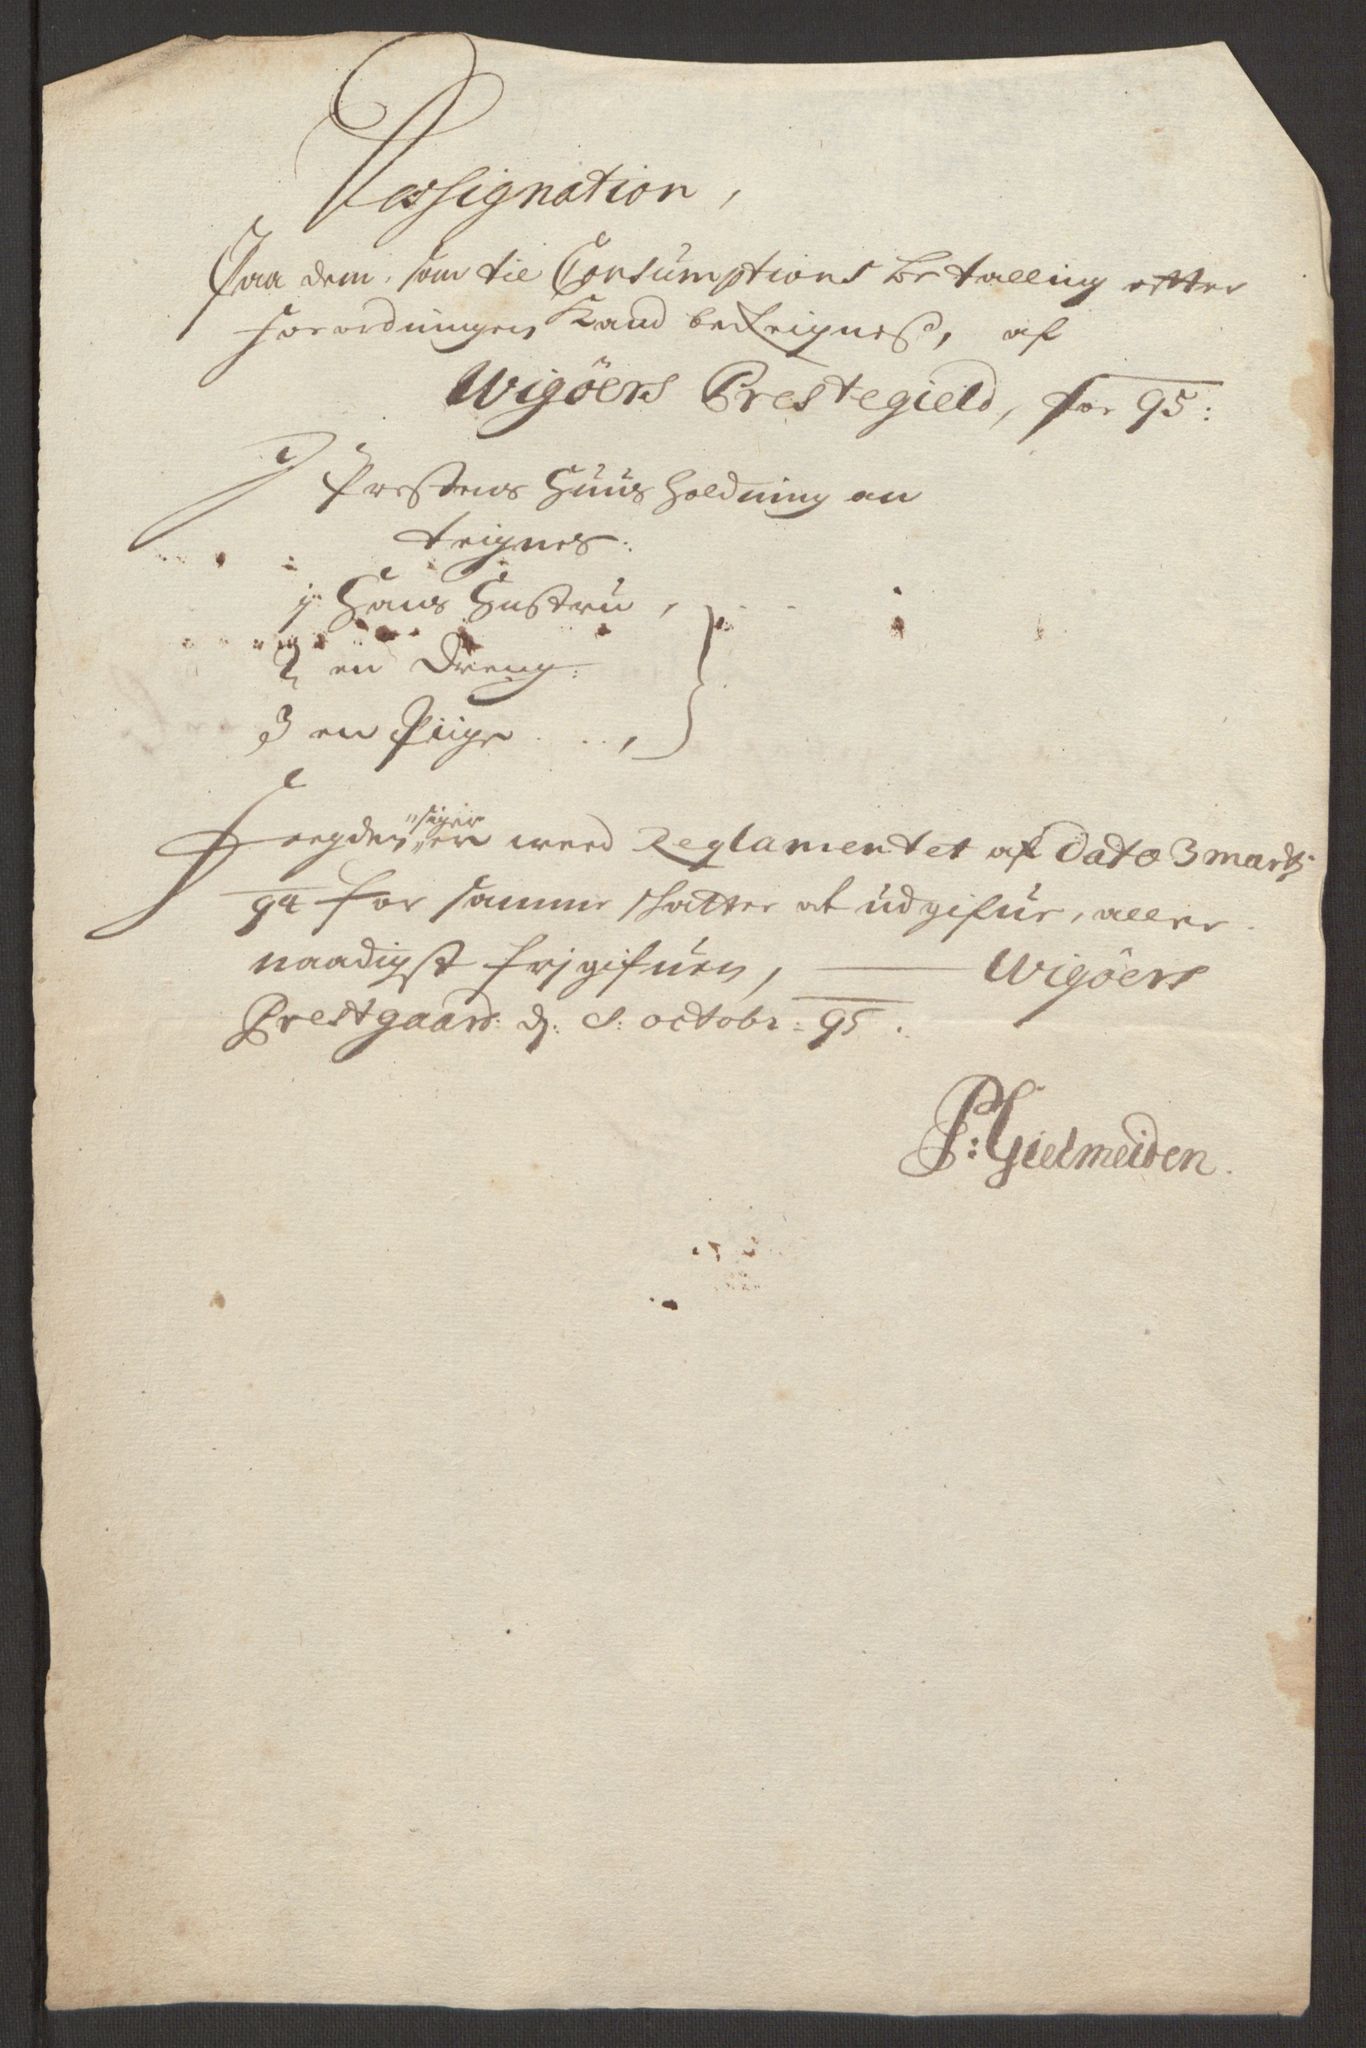 Assignation,
Paa dem, som til Consumptions betalling efter
forordningen Kand beteignes, af
Wigöers Prestegield, for 95:
J Prestens Huus holdning an
teignes:
1 Hans Hustru,
2 en Dreng:
3 en Piige . . . ,
siger
er med Reglamentet af Dato 3 martij
94 for samme skatter at udgifue, aller
naadigst frj gifuen, — Wigöers
Prestgaard: d: octobr: 95.
P: Gielmeiden.